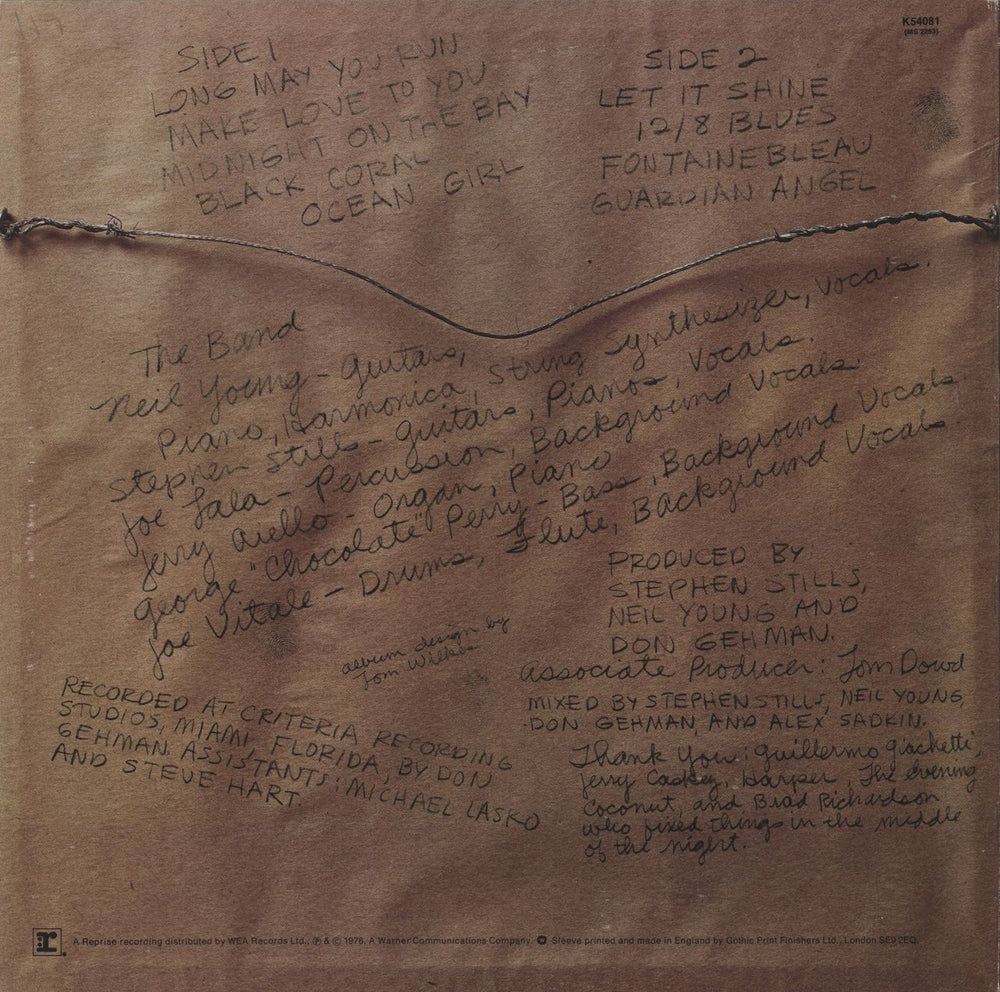 K54081
(MS 2253)
SIDE 1
LONG MAY YOU RUN
MAKE LOVE TO YOU
MIDNIGHT ON THE BAY
BLACK CORAL
OCEAN GIRL
SIDE 2
LET IT SHINE
12/8 BLUES
FONTAINEBLEAU
GUARDIAN ANGEL
The Band
Neil Young - Guitars,
Piano, Harmonica, String Synthesizer, vocals.
Stephen Stills - guitars, Pianos, Vocals.
Joe Lala - Percussion, Background Vocals.
Jerry Aiello - Organ, Piano
George "Chocolate" Perry - Bass, Background Vocals.
Joe Vitale - Drums, Flute, Background Vocals.
album design by
Tom Wilkes
PRODUCED BY
STEPHEN STILLS,
NEIL YOUNG AND
DON GEHMAN.
Associate Producer: Tom Dowd
MIXED BY STEPHEN STILLS, NEIL YOUNG,
DON GEHMAN, AND ALEX SADKIN.
RECORDED AT CRITERIA RECORDING
STUDIOS, MIAMI, FLORIDA, BY DON
GEHMAN. ASSISTANTS: MICHAEL LASKO
AND STEVE HART.
Thank You: Guillermo Giachetti,
Jerry Caskey, Harper, The evening
Coconut, and Brad Richardson
who fixed things in the middle
of the night.
r
A Reprise recording distributed by WEA Records Ltd., ℗ & © 1976. A Warner Communications Company. Sleeve printed and made in England by Gothic Print Finishers Ltd., London SE9 2EQ.